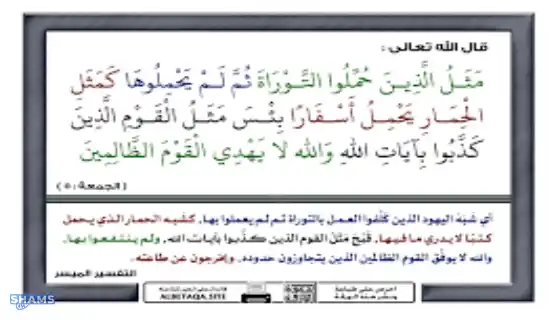 قال الله تعالى :
مَثَلُ الَّذِينَ حُمِّلُوا التَّوْرَاةَ ثُمَّ لَمْ يَحْمِلُوهَا كَمَثَلِ
الْحِمَارِ يَحْمِلُ أَسْفَارًا بِئْسَ مَثَلُ الْقَوْمِ الَّذِينَ
كَذَّبُوا بِآيَاتِ اللَّهِ وَاللَّهُ لَا يَهْدِي الْقَوْمَ الظَّالِمِينَ
( الجمعة : ٥ )
أي شبه اليهود الذين كلفوا العمل بالتوراة ثم لم يعملوا بها، كشبه الحمار الذي يحمل
كتبًا لا يدري ما فيها، قبح مثل القوم الذين كذبوا بآيات الله، ولم ينتفعوا بها،
والله لا يوفق القوم الظالمين الذين يتجاوزون حدوده، ويخرجون عن طاعته.
التفسير الميسر
احرص على طباعة
ونشر هذه البطاقة
ALBETAQA.SITE
SHAMS